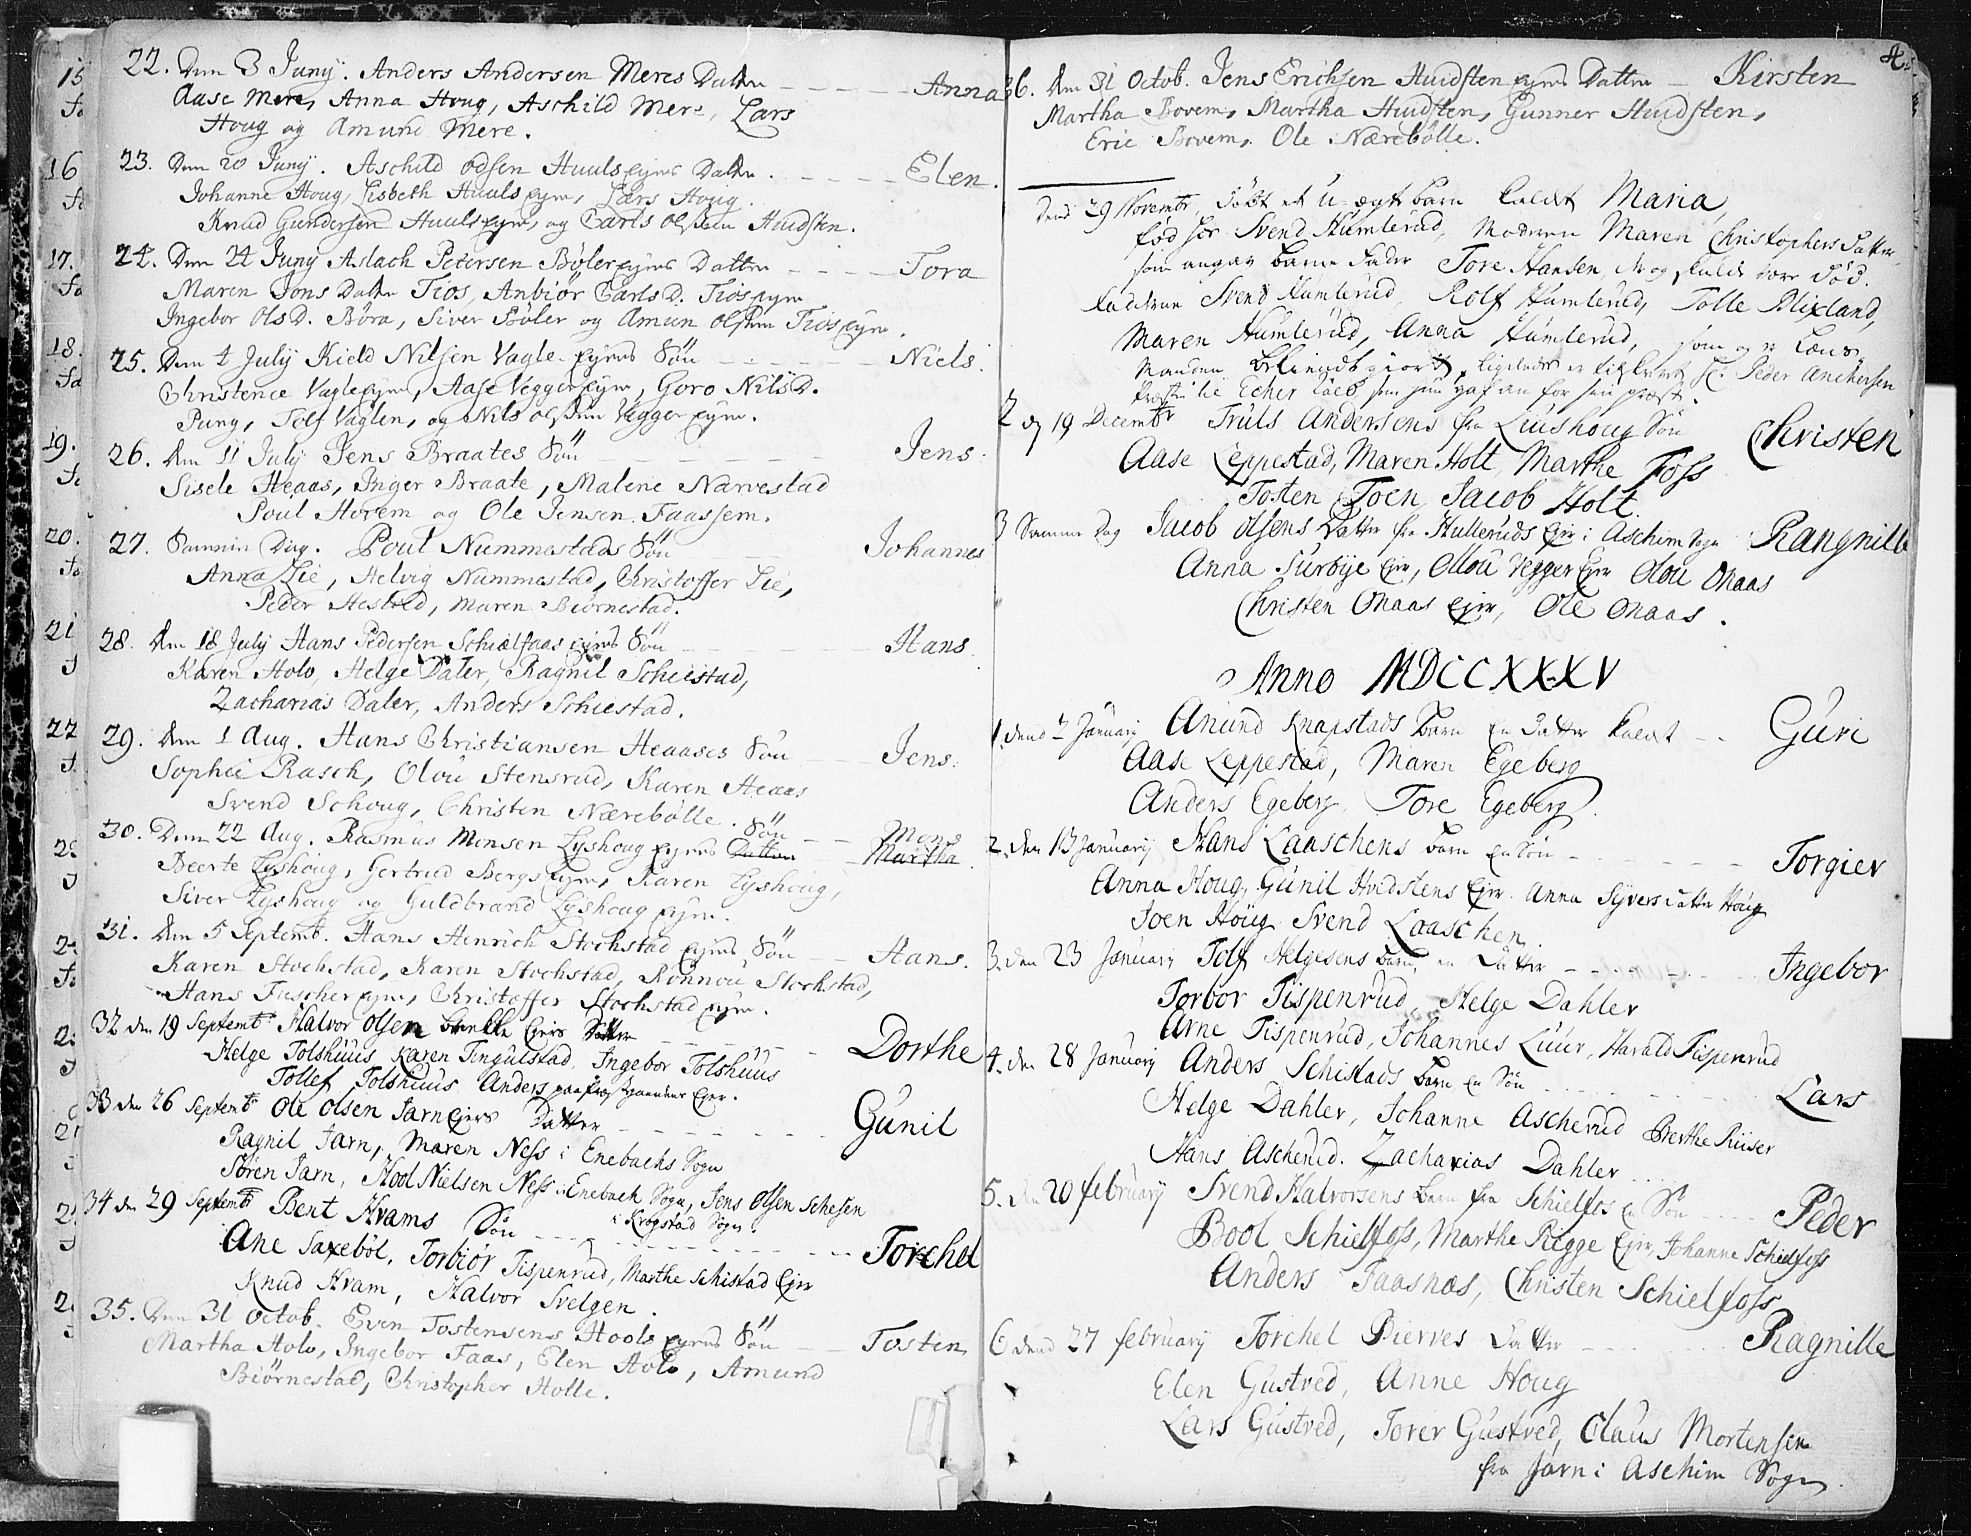 22. Den 3 Junij. Anders Andersen Meres Datter Anna
Aase Mere, Anna Houg, Aschild Mere, Lars
Houg og Amund Mere.
23. Den 20 Junij. Aschild Olsen Huuls Datter. Elen.
Johanne Houg, Lisbeth Huuls eyer, Lars Houg.
Knud Gundersen Huuls eyer, og Carls Huidsten.
24. Den 24 Junij Aslach Petersen Bøler eyers Datter Tora
Maren Jons Datter Tios, Anbiør Carls D. Tios eyer
Ingebor Ols D. Böra, Siver Bøler og Amun Olsen Tios eyer.
25. Den 4 Julij Kield Nilsen Vagle eyers Søn Niels.
Christence Vagle eyer, Aase Vegger eyer, Goro NilsD.
Pung, Tolf Vaglen, og Nils Olsen Vegger eyer.
26. Den 11 Julij Jens Braates Søn Jens.
Sisele Heaas, Inger Braate, Malene Narvestad
Poul Hovem og Ole Jensen Faassem.
27. Samme Dag. Poul Nummestads Søn Johannes
Anna Lie, Helvig Nummestad, Christoffer Lie,
Peder Hestved, Maren Biørnestad.
28. Den 18 July Hans Pedersen Schielfaas eyers Søn Hans.
Karen Holo, Helge Daler, Ragnil Schiestad,
Zacharias Daler, Anders Schiestad.
29. Den 1 Aug. Hans Christiansen Heaases Søn Jens.
Sophei Rasch, Olou Stensrud, Karen Heaas
Svend Schoug, Christen Nærebølle.
30. Den 22 Aug. Rasmus Monsen Lyshoug eyers Datter Søn Mons Martha
Beerte Lyshoug, Gertrud Bergs eyer, Karen Lyshoug,
Siver Lyshoug og Guldbrand Lyshoug eyer.
31. Den 5 Septemb. Hans Henrich Stochstad eyers Søn Hans.
Karen Stochstad, Karen Stochstad, Rönnou Stochstad,
Hans Fuscher eyer, Christoffer Stochstad eyer.
32 den 19 Septemb. Halvor Olsen Eiers Datter Dorthe
Helge Tolshuus Karen Tingulstad, Ingebor Tolshuus
Tollef Tolshuus Anders Eyer.
33 den 26 Septemb Ole Olsen Jarn Eiers Datter Gunil
Ragnil Jarn, Maren Ness i Enebachs Sogn
Sören Jarn, Hool Nielsen Ness i Enebach Sogn, Jens Olsen Schesen
i Krogstad Sogn.
34 den 29 Septemb Bent Hvams Søn Torchel
Ane Saxeböl, Torbiör Tispenrud, Marthe Schistad Eyer
Knud Hvam, Halvor Svelgen.
35. Den 31 Octob. Even Tostensens Hools eyers Søn Tosten
Martha Holo, Ingebor Faas, Elen Holo, Amund
Biörnestad, Christopher Holle.
36. Den 31 Octob. Jens Erichsen Huidsten eyers Datter Kirsten
Martha Bovem, Martha Huidsten, Gunner Huidsten,
Eric Bovem, Ole Nærebølle.
Dend 29 Novembr. Døbt et U-ægte barn kaldt Maria,
fød hos Svend Humlerud, Moderen Maren Christophers Datter
som angav Barne Fader Tore Hansen, der og skulde være Død.
Fadderne Svend Humlerud, Rolf Humlerud, Tolle Blixland,
Maren Humlerud, Anna Humlerud, som og er Lens
Manden bekiendtgiort, ligeledes er Hr. Peder Anchersen
Præst til Echer
2 dj 19 Decembr Truls Andersens fra Liushoug Søn Christen
Aase Leppestad, Maren Holt, Marthe Foss
Tosten Toen, Jacob Holt.
3 Samme Dag Jacob Olsens Datter fra Hulleruds Eyer i Aschim Sogn Rangnille
Anna Surbye Eyer, Olou Vegger Eyer Olou Onaas
Christen Onaas Eyer, Ole Onaas.
Anno MDCCXXXV
1. Dend 2 January Amund Knapstads Barn En Datter kaldt Guri
Aase Leppestad, Maren Egeberg
Anders Egeberg, Tore Egeberg
2. Den 13 January Hans Laaschens barn en Søn Torgier
Anna Houg, Gunil Hvidstens Eyer. Anna Syversdatter Houg
Joen Houg Svend Laaschen.
3. den 23 January Tolf Helgesens barn, en Datter Ingebor
Torbor Tispenrud, Helge Dahler
Arne Tispenrud, Johannes Luur, Harald Tispenrud
4. den 28 January Anders Schistads Barn En Søn Lars
Helge Dahler, Johanne Ascherud Berthe Riiser
Hans Ascherud. Zacharias Dahler
5. den 20 february Svend Halvorsens barn fra Schielfos en Søn Peder
Bool Schielfoss, Marthe Rigge Eyer, Johanne Schielfoss
Anders Faasnæs, Christen Schielfoss
6 dend 27 february Torchel Bierres Datter Ragnille
Elen Gustved, Anne Houg
Lars Gustved, Torer Gustved, Olaus Mortensen
fra Jarn i Aschim Sogn.